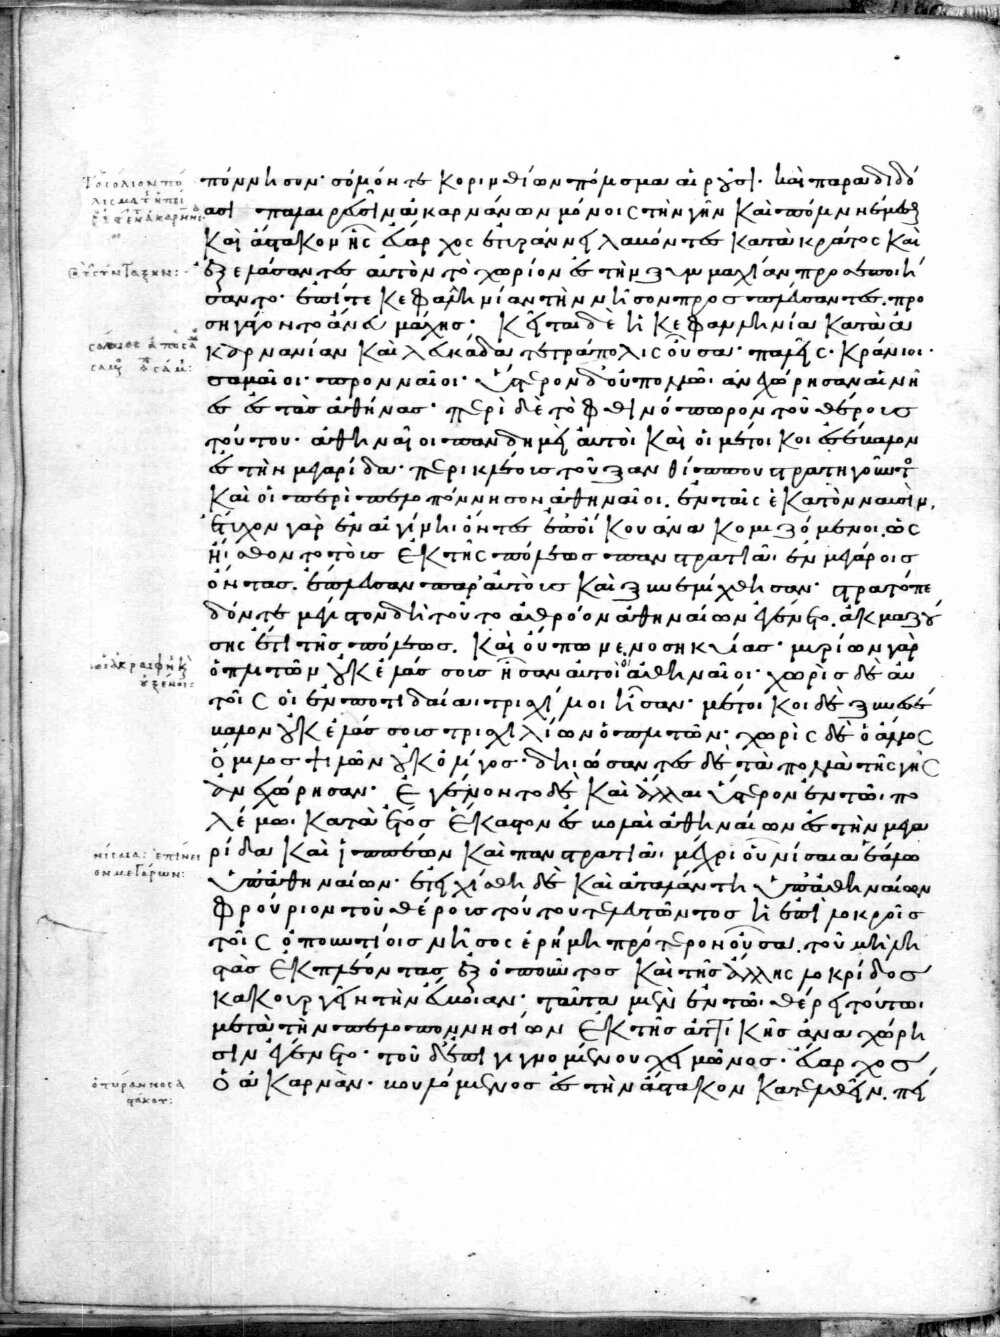 πόννησον· σόλιόν τε κορινθίων πόλισμα αἱροῦσι· καὶ παραδιδό
ασι παλαιρεῦσιν ἀκαρνάνων μόνοις τὴν γῆν καὶ πόλιν νέμεσθαι
καὶ ἀστακὸν ἧς εὔαρχος ἐτυράννει λαβόντες κατὰ κράτος καὶ
ἐξελάσαντες αὐτὸν τὸ χωρίον ἐς τὴν ξυμμαχίαν προσεποιή
σαντο· ἐπί τε κεφαλληνίαν τὴν νῆσον προσπλεύσαντες. προ
σηγάγοντο ἄνευ μάχης· κεῖται δὲ ἡ κεφαλληνία κατὰ ἀ
καρνανίαν καὶ λευκάδα τετράπολις οὖσα· παλεῖς· κράνιοι·
σαμαῖοι· προνναῖοι· ὕστερον δ' οὐ πολλῶ· ἀνεχώρησαν αἱ νῆ
ες ἐς τὰς ἀθήνας· περὶ δὲ τὸ φθινόπωρον τοῦ θέρους
τούτου· ἀθηναῖοι πανδημεὶ αὐτοὶ καὶ οἱ μέτοικοι ἐσέβαλον
ἐς τὴν μεγαρίδα· περικλέους τοῦ ξανθίππου στρατηγοῦντος
καὶ οἱ περὶ πελοπόννησον ἀθηναῖοι. ἐν ταῖς ἑκατὸν ναυσὶν,
ἔτυχον γὰρ ἐν αἰγίνη· ὄντες ἐπ' οἴκου ἀνακομιζόμενοι. ὡς
ἤισθοντο τοὺς ἐκ τῆς πόλεως πανστρατιᾶι ἐν μεγάροις
ὄντας. ἔπλευσαν παρ' αὐτοὺς καὶ ξυνεμίχθησαν· στρατόπε
δόν τε μέγιστον δὴ τοῦτο ἀθρόον ἀθηναίων ἐγένετο. ἀκμαζού
σης ἔτι τῆς πόλεως. καὶ οὔπω νενοσηκυίας· μυρίων γὰρ
ὁπλιτῶν οὐκ ἐλάσσους ἦσαν αὐτοὶ οἱ ἀθηναῖοι· χωρὶς δὲ αὐ
τοῖς οἱ ἐν ποτιδαία· τρισχίλιοι ἦσαν· μέτοικοι δὲ ξυνεσέ
βαλον οὐκ ἐλάσσους τρισχιλίων ὁπλιτῶν· χωρὶς δὲ ὁ ἄλλος
ὅμιλος ψιλῶν οὐκ ὀλίγος· δηιώσαντες δὲ τὰ πολλὰ τῆς γῆς
ἀνεχώρησαν· ἐγένοντο δὲ καὶ ἄλλαι ὕστερον ἐν τῶι πο
λέμωι κατὰ ἔτος ἕκαστον ἐσβολαὶ ἀθηναίων ἐς τὴν μεγα
ρίδα καὶ ἱππέων καὶ πανστρατιᾶι μέχρι οὗ νίσαια ἑάλω
ὑπ' ἀθηναίων· ἐτειχίσθη δὲ καὶ ἀταλάντη ὑπὸ ἀθηναίων
φρούριον τοῦ θέρους τούτου τελευτῶντος ἡ ἐπὶ λοκροῖς
τοῖς ὀπουντίοις νῆσος ἐρήμη πρότερον οὖσα. τοῦ μὴ λη
στὰς ἐκπλέοντας ἐξ ὀποῦντος καὶ τῆς ἄλλης λοκρίδος
κακουργεῖν τὴν εὔβοιαν· ταῦτα μὲν ἐν τῶι θέρει τούτωι
μετὰ τὴν πελοποννησίων ἐκ τῆς ἀττικῆς ἀναχώρη
σιν ἐγένετο· τοῦ δ' ἐπιγιγνομένου χειμῶνος· εὔαρχος
ὁ ἀκαρνὰν· βουλόμενος ἐς τὴν ἀστακὸν κατελθεῖν. πεί
νίσαια: ἐπίνει
ον μεγάρων:
ὁ τύραννος ἀ
στάκου: